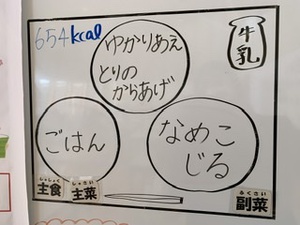 654kcal
ゆかりあえ
とりの
からあげ
牛乳
ごはん
なめこ
じる
しゅしょく
主食
しゅさい
主菜
ふくさい
副菜